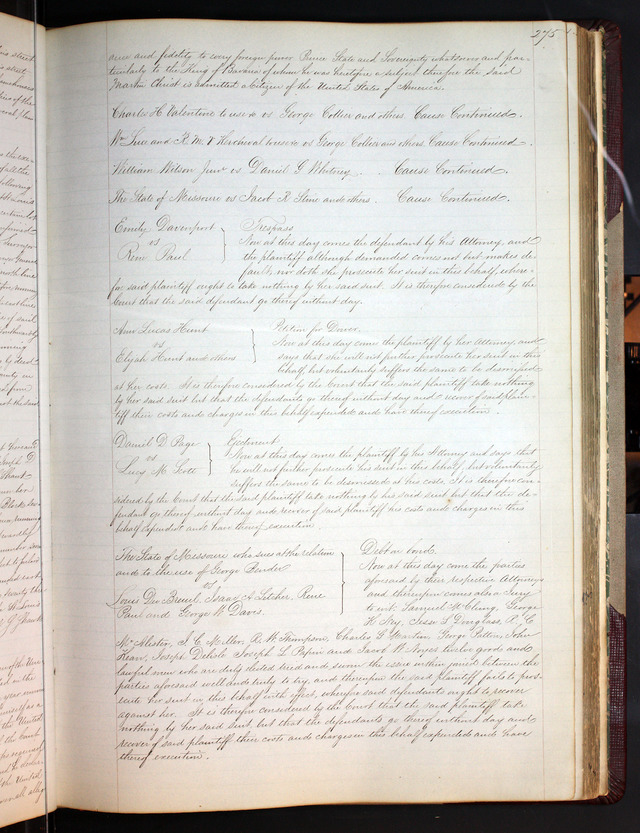 275
ance and fidelity to every foreign power Prince State and Sovereignty whatsoever and par-
ticularly to the King of Bavaria of whom he was heretofore a subject therefore the said
Martin Christ is admitted a Citizen of the United States of America.
Charles H Valentine to use &c vs George Collier and others. Cause Continued.
Wm and R M &c vs George Collier and others. Cause Continued.
William Wilson Junr vs Daniel G Whitney. Cause Continued.
The State of Missouri vs Jacob R Stine and others. Cause Continued.
Emily Davenport
vs
Rene Paul
Trespass
Now at this day comes the defendant by his Attorney and
the plaintiff although demanded comes not but makes de-
fault, nor doth she prosecute her suit in this behalf, where-
fore said plaintiff ought to take nothing by her said suit. It is therefore considered by the
Court that the said defendant go thereof without day.
Ann Lucas Hunt
vs
Elijah Hunt and others
Petition for Dower.
Now at this day come the plaintiff by her Attorney and
says that she will not further prosecute her suit in this
behalf but voluntarily suffers the same to be dismissed
at her costs. It is therefore considered by the Court that the said plaintiff take nothing
by her said suit but that the defendants go thereof without day and recover of said plain-
tiff their costs and charges in this behalf expended and have thereof execution.
Daniel D. Page
vs
Lucy M. Scott
Ejectment.
Now at this day comes the plaintiff by his Attorney and says that
he will not further prosecute his suit in this behalf, but voluntarily
suffers the same to be dismissed at his costs. It is therefore con-
sidered by the Court that the said plaintiff take nothing by his said suit but that the de-
fendant go thereof without day and recover of said plaintiff his costs and charges in this
behalf expended and have thereof execution.
The State of Missouri who sues at the relation
and to the use of George Bender
vs
Louis Du Breuil, Isaac A Letcher, Rene
Paul and George W Davis.
Debt on bond.
Now at this day come the parties
aforesaid by their respective Attorneys
and thereupon comes also a Jury
to wit Samuel McClung, George
K Ney, Jesse S Douglass, R. C
McAlister, J. C. Miller, R. W Thompson, Charles L George Pattison John
Kean, Joseph Joseph L Papin and Jacob W Noyes twelve good and
lawful men who are duly elected tried and sworn the issue within joined between the
parties aforesaid well and truly to try, and thereupon the said plaintiff fails to pros-
ecute her suit in this behalf with effect, wherefore said defendants ought to recover
against her. It is therefore considered by the Court that the said plaintiff take
nothing by her said suit but that the defendants go thereof without day and
recover of said plaintiff their costs and charges in this behalf expended and have
thereof execution.